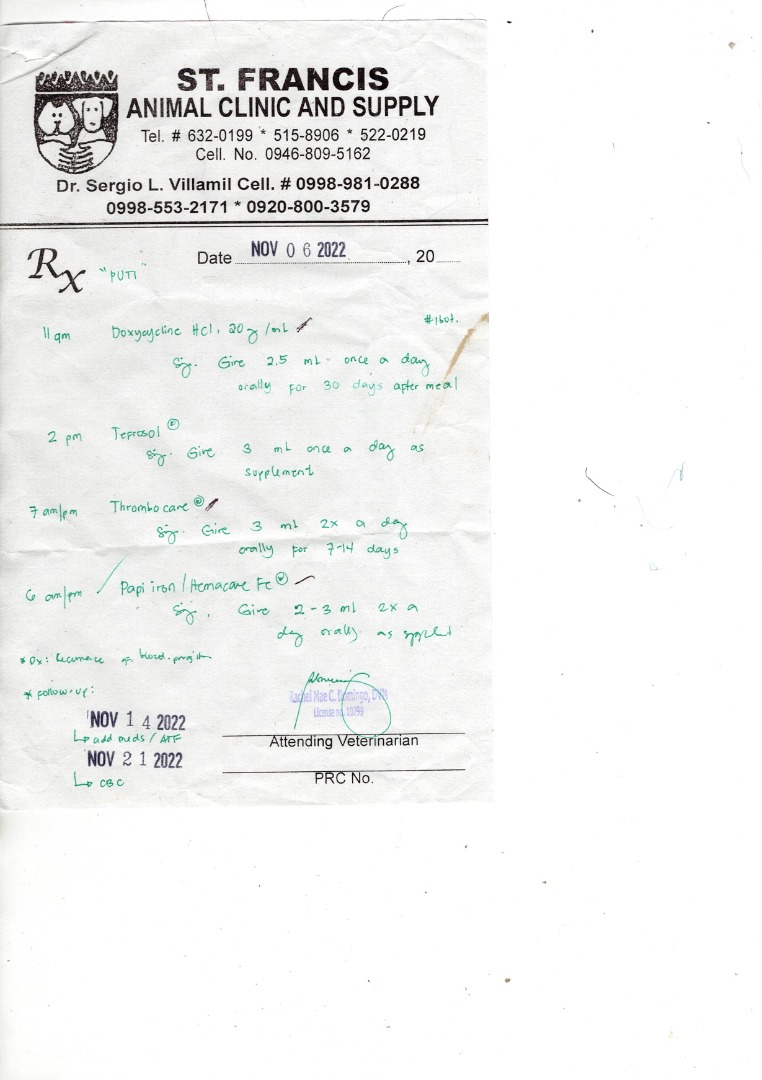 ST. FRANCIS
ANIMAL CLINIC AND SUPPLY
Tel. # 632-0199 * 515-8906 * 522-0219
Cell. No. 0946-809-5162
Dr. Sergio L. Villamil Cell. # 0998-981-0288
0998-553-2171 * 0920-800-3579
Rx "PUTI" Date NOV 06 2022, 20
11 am Doxycycline HCl, 20 /mL #1bot.
Sig. Give 2.5 mL once a day
orally for 30 days after meal
2 pm Tefrosol ®
Sig. Give 3 mL once a day as
supplement
7 am/pm Thrombocare ®
Sig. Give 3 mL 2x a day
orally for 7-14 days
6 am/pm Papi iron / Hemacare Fe ®
Sig. Give 2-3 mL 2x a
day orally as
* Dx: Recurrence of blood
* Follow-up:
Rachel Mae C. Domingo, DVM
License no. 10799
NOV 14 2022
↳ add meds / ATF
Attending Veterinarian
NOV 21 2022
↳ CBC
PRC No.